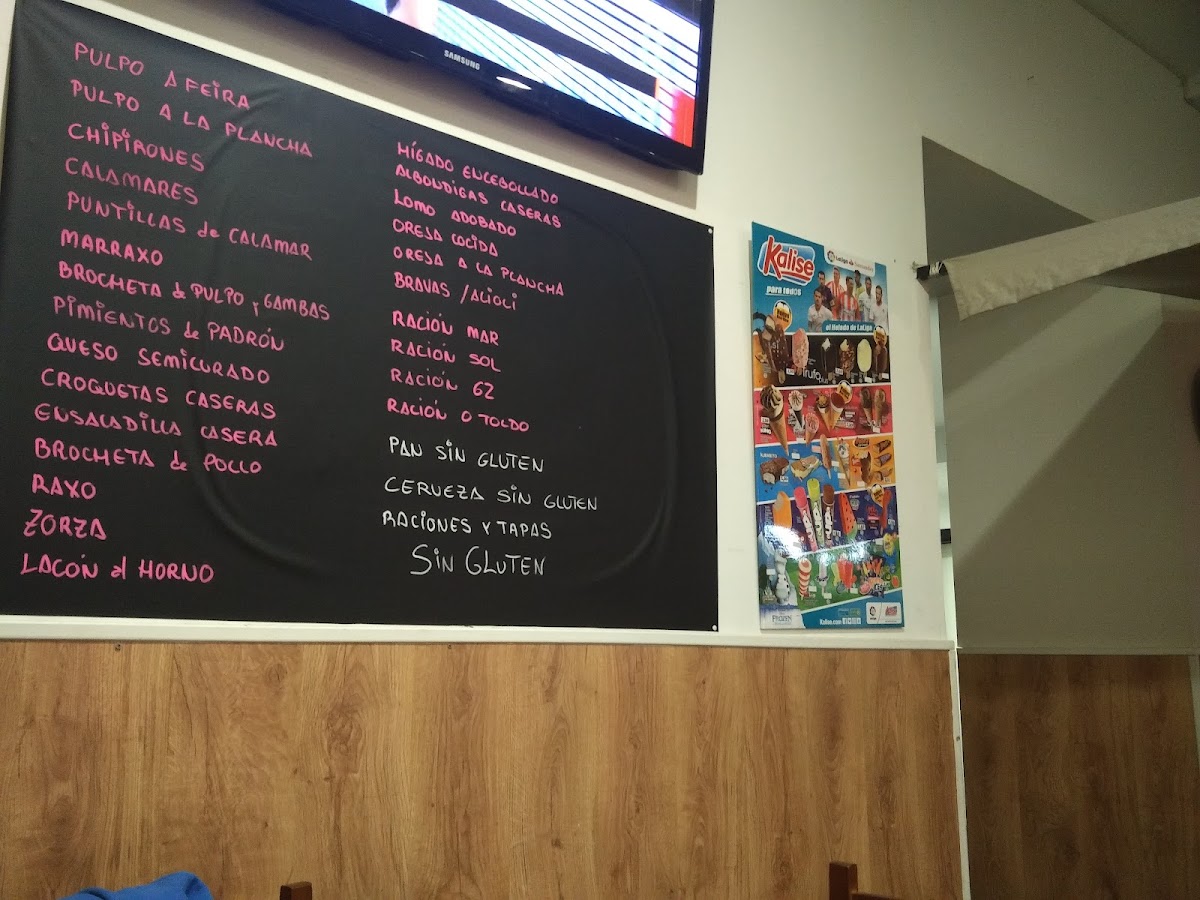 SAMSUNG
PULPO A FEIRA
PULPO A LA PLANCHA
CHIPIRONES
CALAMARES
PUNTILLAS de CALAMAR
MARRAXO
BROCHETA de PULPO y GAMBAS
PIMIENTOS de PADRÓN
QUESO SEMICURADO
CROQUETAS CASERAS
ENSALADILLA CASERA
BROCHETA de POLLO
RAXO
ZORZA
LACÓN al HORNO
HÍGADO ENCEBOLLADO
ALBONDIGAS CASERAS
LOMO ADOBADO
OREJA COCIDA
OREJA A LA PLANCHA
BRAVAS / ALIOLI
RACIÓN MAR
RACIÓN SOL
RACIÓN 62
RACIÓN O TOLDO
PAN SIN GLUTEN
CERVEZA SIN GLUTEN
RACIONES Y TAPAS
SIN GLUTEN
Kalise
para todos
LaLiga
el Helado de LaLiga
trufa
FROZEN
Kalise.com